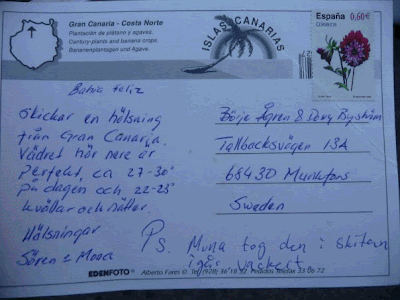 Gran Canaria - Costa Norte
Plantación de plátano y agaves.
Century-plants and banana crops.
Bananenplantagen und Agave.
ISLAS CANARIAS
España 0,60€
CORREOS
Bahia feliz
Skickar en hälsning
från Gran Canaria.
Vädret här nere är
Perfekt, ca 27-30°
På dagen och 22-25°
kvällar och nätter.
Hälsningar
Sören & Mona
Börje Ågren &
Tallbacksvägen 13A
68430 Munkfors
Sweden
Ps. Mona tog den i skiten
igår vackert.
EDENFOTO Alberto Fares